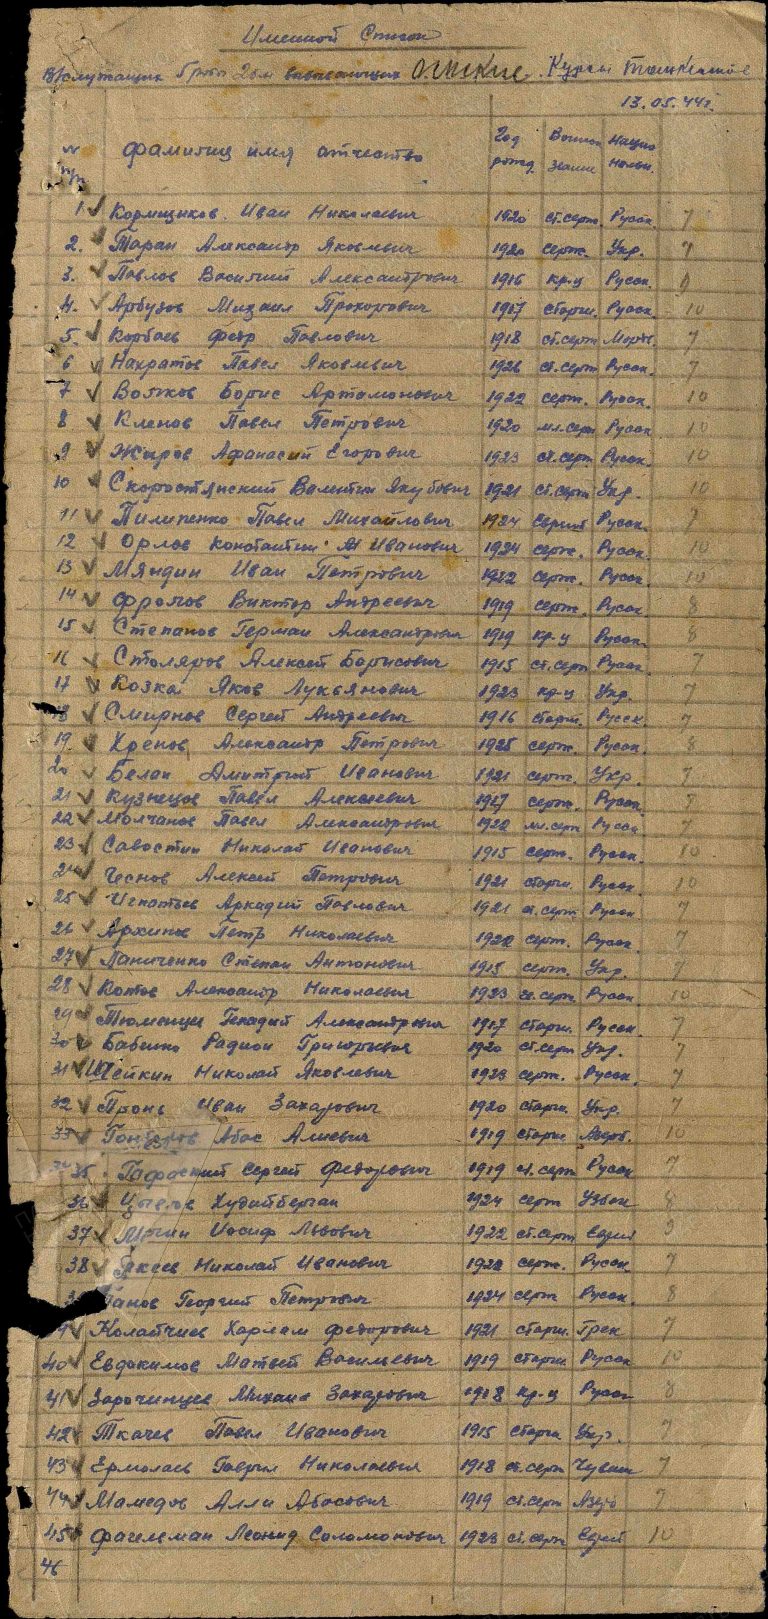 Именной Список
В/служащих Группы 2ой выпускающих ОГНКис. Курсы
13.05.44г.
№ п/п фамилия имя отчество Год рожд. Воинск звание Нацио нальн.
1 Кормщиков Иван Николаевич 1920 ст.серж. Русск. 7
2. Таран Александр Яковлевич 1920 серж. Укр. 7
3. Павлов Василий Александрович 1916 кр-ц Русск.
4. Арбузов Михаил Прохорович 1917 старш. Русск. 10
5. Корбаев федр Павлович 1918 ст.серж Морд. 7
6 Накратов Павел Яковлевич 1926 ст.серж Русск. 7
7 Волков Борис Артамонович 1922 серж. Русск. 10
8 Кленов Павел Петрович 1920 мл.серж Русск 10
9 Жиров Афанасий Егорович 1923 ст.серж. Русск. 10
10 Скоростянский Валентин Якубович 1921 ст.серж Укр. 10
11 Пилипенко Павел Михайлович 1924 Русск. 7
12 Орлов Константин Иванович 1924 серж. Русск. 10
13 Мяндин Иван Петрович 1922 серж. Русск. 10
14 фролов Виктор Андреевич 1919 серж. Русск 8
15 Степанов Герман Александрович 1919 кр-ц Русск. 8
16 Столяров Алексей Борисович 1915 ст.серж Русск. 7
17 Козка Яков Лукьянович 1923 кр-ц Укр. 7
18 Смирнов Сергей Андреевич 1916 старш. Русск. 7
19. Хренов Александр Петрович 1925 серж. Русск. 8
20 Белан Дмитрий Иванович 1921 серж. Укр. 7
21 Кузнецов Павел Алексеевич 1917 серж. Русск. 7
22 Молчанов Павел Александрович 1922 мл.серж Русск 7
23 Савостин Николай Иванович 1915 серж. Русск. 10
24 Чеснов Алексей Петрович 1921 старш. Русск. 10
25 Игнатьев Аркадий Павлович 1921 ст.серж Русск 7
26 Архипов Петр Николаевич 1922 серж. Русск. 7
27 Паниченко Степан Антонович 1915 серж. Укр. 7
28 Котов Александр Николаевич 1923 ст.серж. Русск 10
29 Тюменцев Генадий Александрович 1917 старш. Русск. 7
30 Бабенко Радион Григорьевич 1920 ст.серж Укр. 7
31 Шейкин Николай Яковлевич 1923 серж. Русск. 7
32 Пронь Иван Захарович 1920 старш. Укр. 7
33 Абас Алиевич 1919 старш. Азерб. 10
35. Сергей федорович 1919 ст.серж Русск 7
36 Худайберган 1924 серж Узбек 8
37 Иосиф Львович 1922 ст.серж Еврей 9
38 Николай Иванович 1922 серж. Русск 7
Панов Георгий Петрович 1924 серж Русск. 8
39 Колайчиев Харлам федорович 1921 старш. Грек 7
40 Евдокимов Матвей Васильевич 1919 старш. Русск 10
41 Зарочинцев Михаил Захарович 1918 кр-ц Русск 8
42 Ткачев Павел Иванович 1915 старш Укр. 7
43 Ермолаев Гаврил Николаевич 1918 ст.серж Чуваш 7
44 Мамедов Алли Абасович 1919 ст.серж Азерб 7
45 фагельман Леонид Соломонович 1923 ст.серж Еврей 10
46